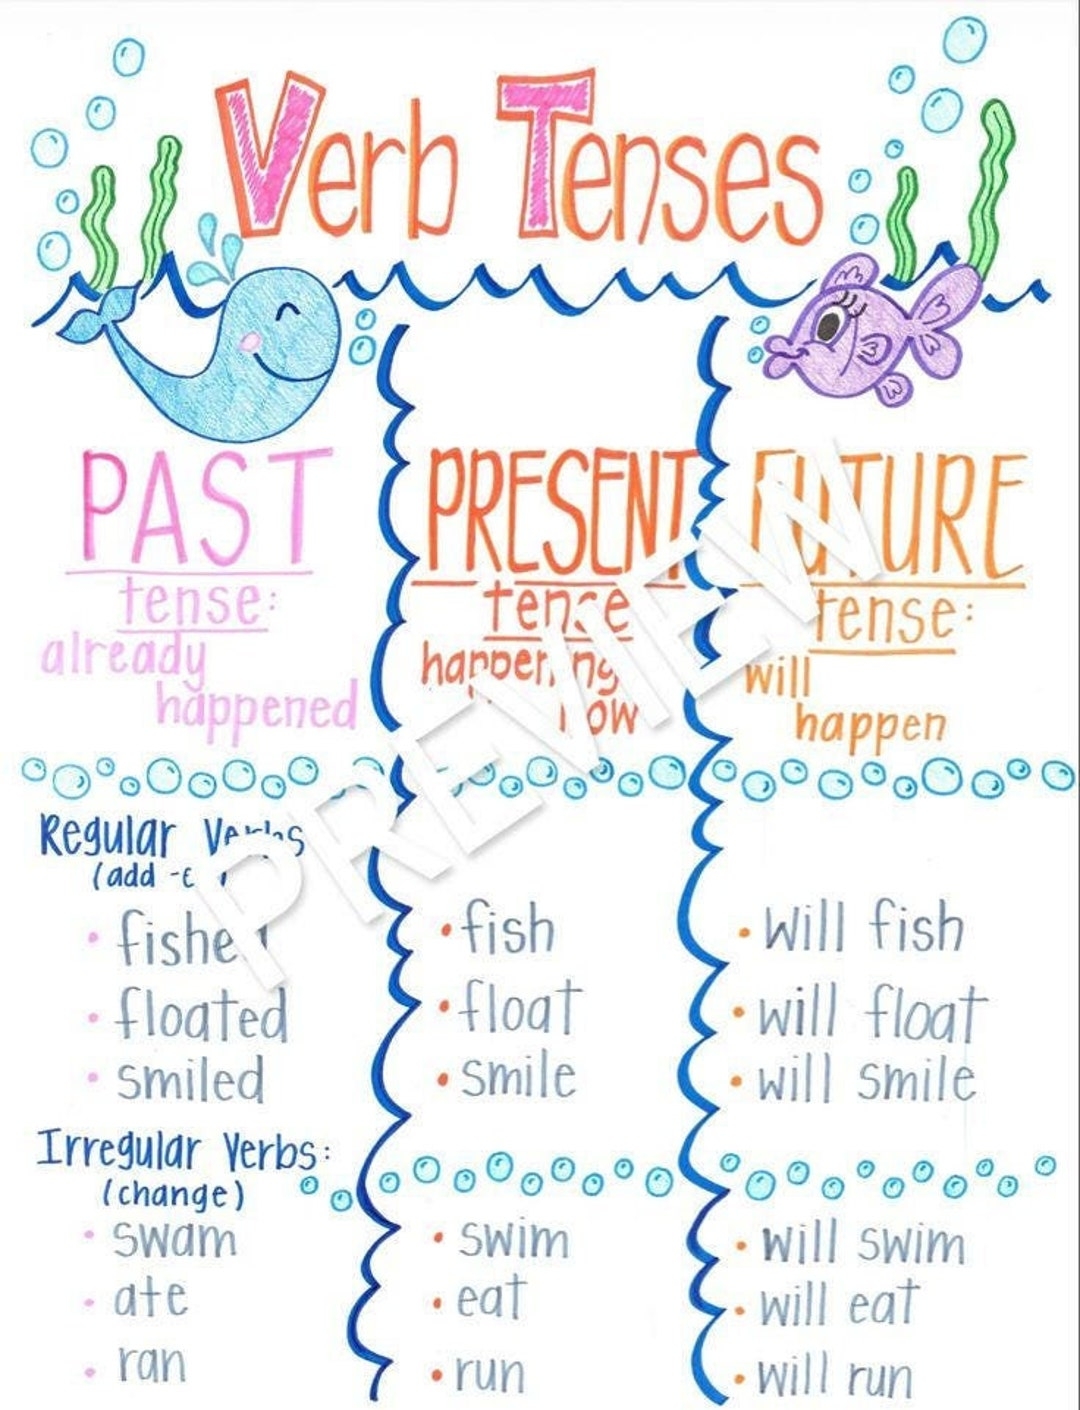 Verb Tenses
PAST
tense:
already
happened
PRESENT
tense
happening
now
FUTURE
tense:
will
happen
PREVIEW
Regular Verbs
(add -e
• fished
• floated
• smiled
• fish
• float
• smile
• will fish
• will float
• will smile
Irregular Verbs:
(change)
• swam
• ate
• ran
• swim
• eat
• run
• will swim
• will eat
• will run